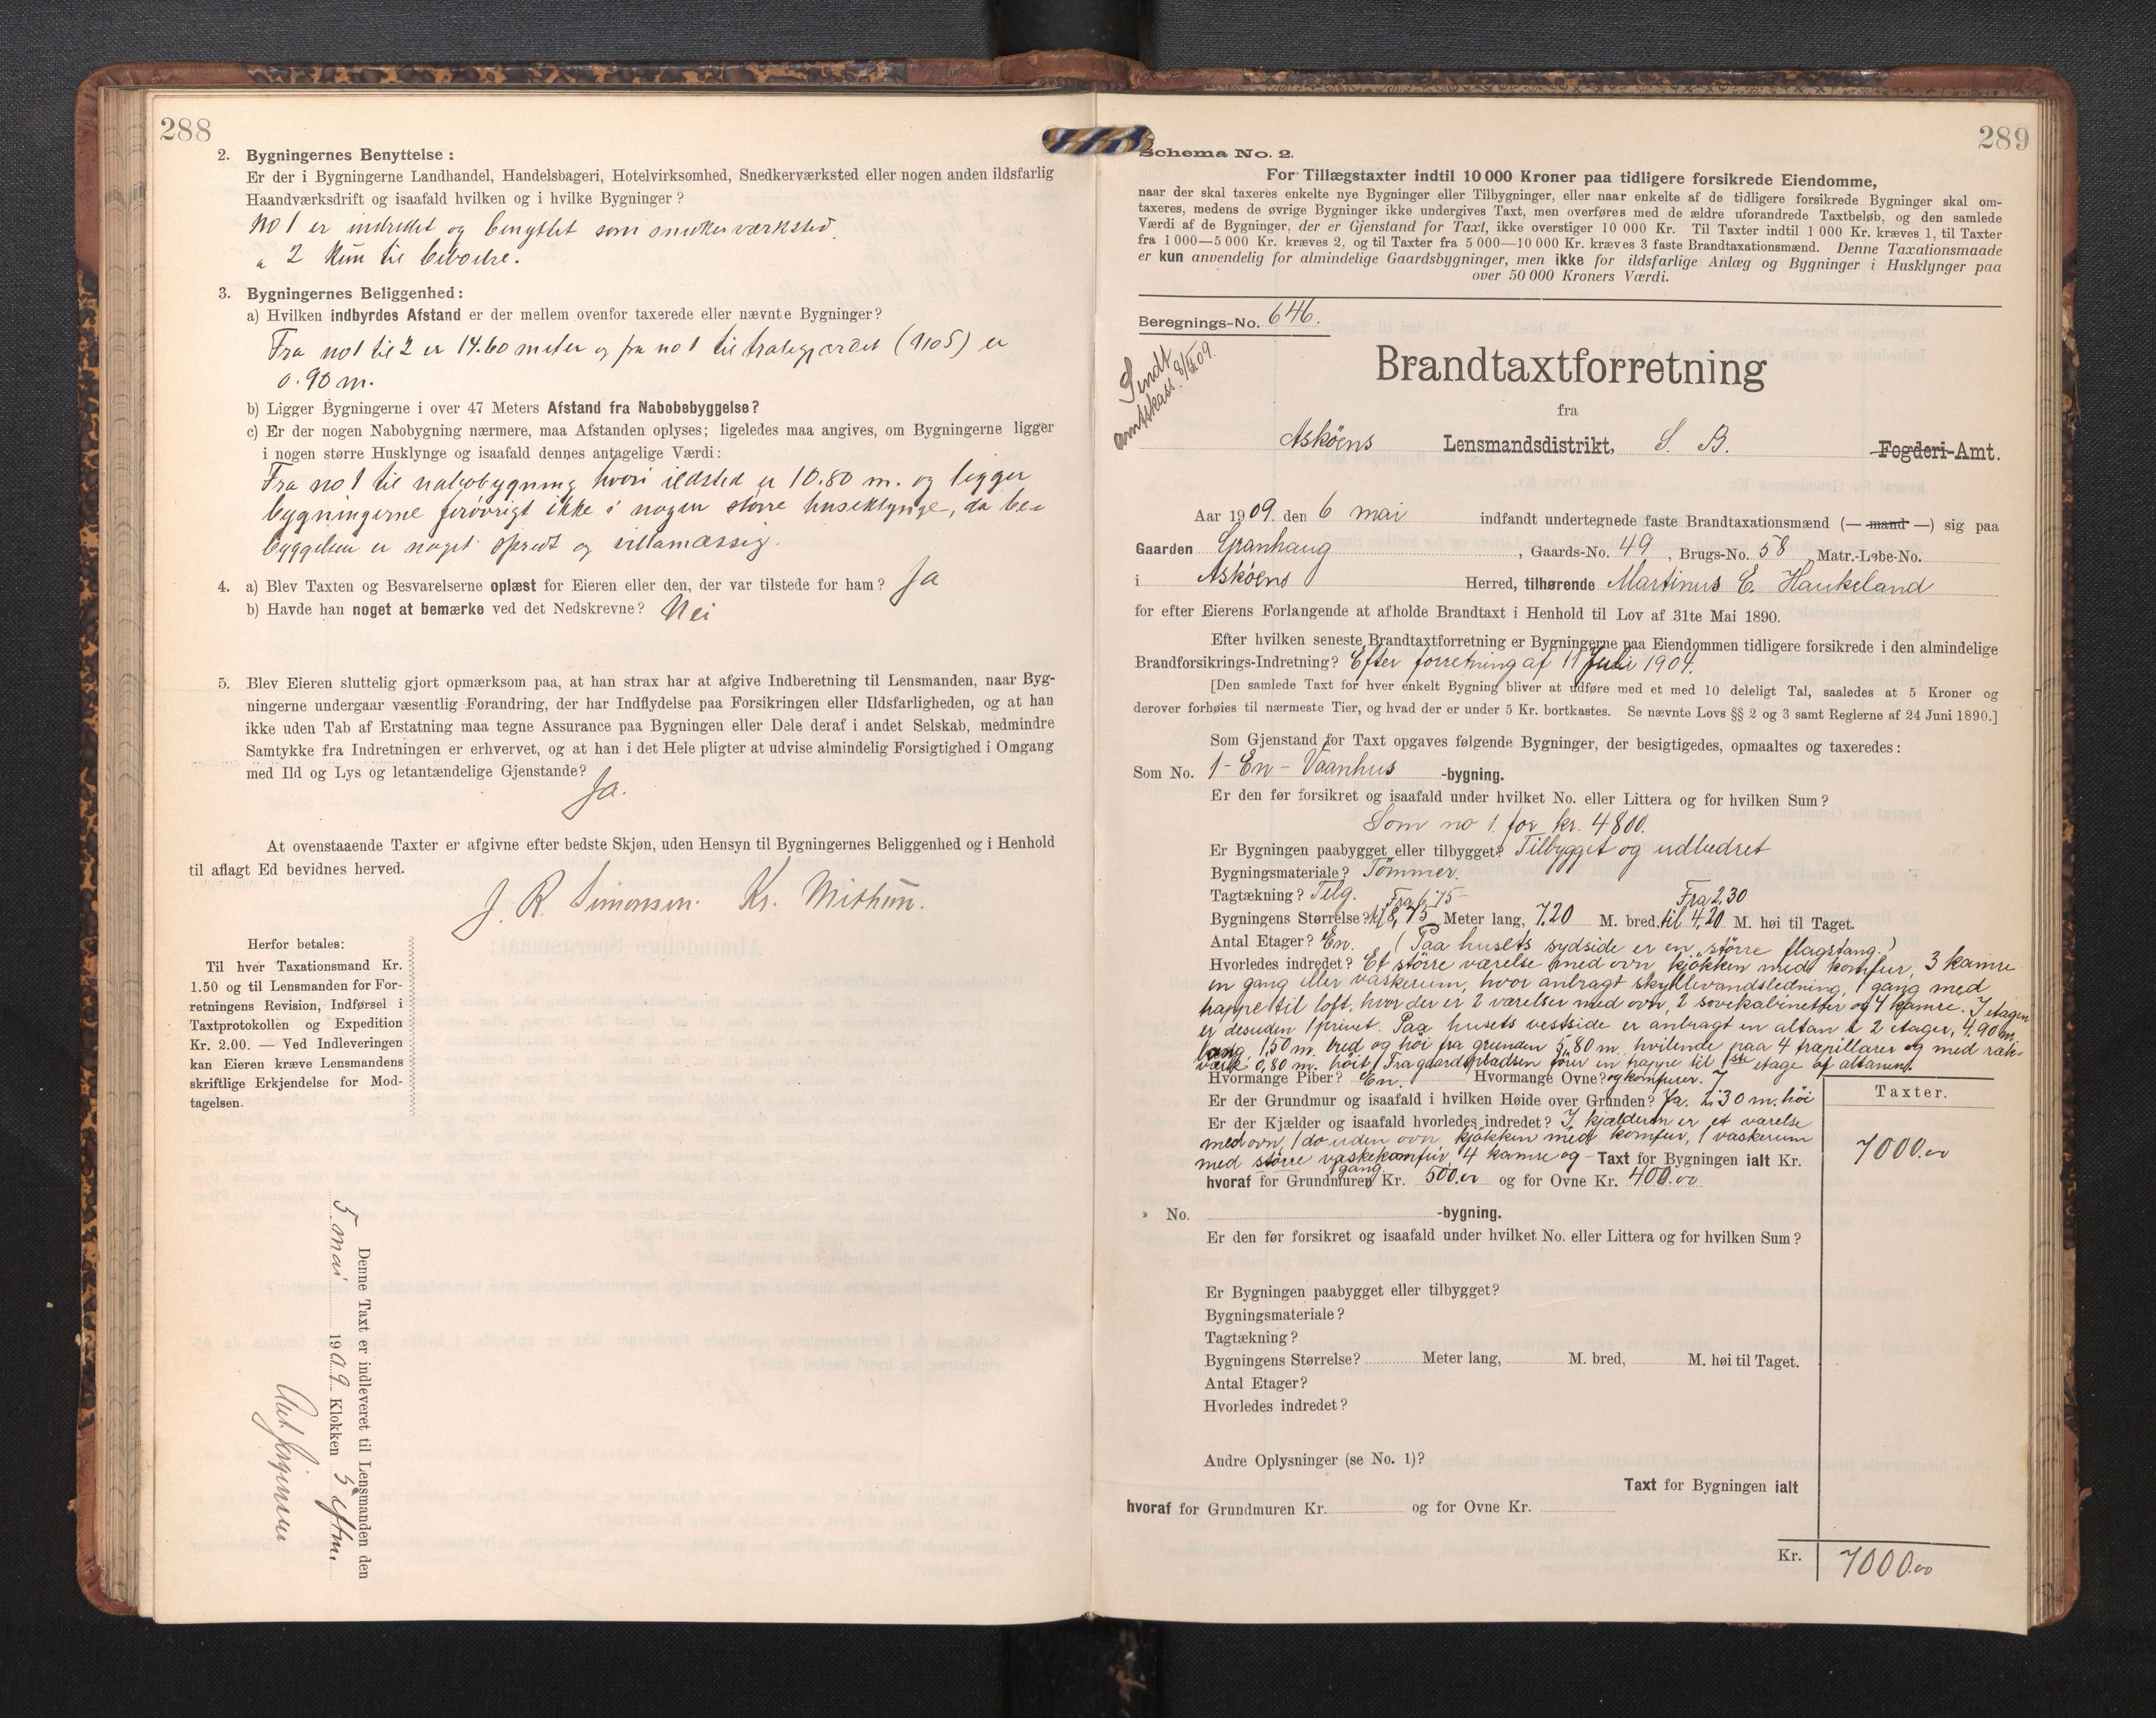 288
2. Bygningernes Benyttelse:
Er der i Bygningerne Landhandel, Handelsbageri, Hotelvirksomhed, Snedkerværksted eller nogen anden ildsfarlig
Haandværksdrift og isaafald hvilken og i hvilke Bygninger?
No 1 er indredet og benyttet som snedkerværksted.
" 2 kun til beboelse.
3. Bygningernes Beliggenhed:
a) Hvilken indbyrdes Afstand er der mellem ovenfor taxerede eller nævnte Bygninger?
Fra no 1 til 2 er 14.60 meter og fra no 1 til (No 5) er
0.90 m.
b) Ligger Bygningerne i over 47 Meters Afstand fra Nabobebyggelse?
c) Er der nogen Nabobygning nærmere, maa Afstanden oplyses; ligeledes maa angives, om Bygningerne ligger
i nogen større Husklynge og isaafald dennes antagelige Værdi:
Fra no 1 til nabobygning hvori ildsted er 10.80 m. og ligger
bygningerne forøvrigt ikke i nogen større huseklynge, da be-
byggelsen er noget spredt og villamæssig.
4. a) Blev Taxten og Besvarelserne oplæst for Eieren eller den, der var tilstede for ham? Ja
b) Havde han noget at bemærke ved det Nedskrevne? Nei
5. Blev Eieren sluttelig gjort opmærksom paa, at han strax har at afgive Indberetning til Lensmanden, naar Byg-
ningerne undergaar væsentlig Forandring, der har Indflydelse paa Forsikringen eller Ildsfarligheden, og at han
ikke uden Tab af Erstatning maa tegne Assurance paa Bygningen eller Dele deraf i andet Selskab, medmindre
Samtykke fra Indretningen er erhvervet, og at han i det Hele pligter at udvise almindelig Forsigtighed i Omgang
med Ild og Lys og letantændelige Gjenstande?
Ja.
At ovenstaaende Taxter er afgivne efter bedste Skjøn, uden Hensyn til Bygningernes Beliggenhed og i Henhold
til aflagt Ed bevidnes herved.
J. R. Simonsen. Kr. Mithun.
Herfor betales:
Til hver Taxationsmand Kr.
1.50 og til Lensmanden for For-
retningens Revision, Indførsel i
Taxtprotokollen og Expedition
Kr. 2.00. — Ved Indleveringen
kan Eieren kræve Lensmandens
skriftlige Erkjendelse for Mod-
tagelsen.
Denne Taxt er indleveret til Lensmanden den
5. mai 1909 Klokken 5 eftm.
289
Schema No. 2.
For Tillægstaxter indtil 10 000 Kroner paa tidligere forsikrede Eiendomme,
naar der skal taxeres enkelte nye Bygninger eller Tilbygninger, eller naar enkelte af de tidligere forsikrede Bygninger skal om-
taxeres, medens de øvrige Bygninger ikke undergives Taxt, men overføres med de ældre uforandrede Taxtbeløb, og den samlede
Værdi af de Bygninger, der er Gjenstand for Taxt, ikke overstiger 10 000 Kr. Til Taxter indtil 1 000 Kr. kræves 1, til Taxter
fra 1 000—5 000 Kr. kræves 2, og til Taxter fra 5 000—10 000 Kr. kræves 3 faste Brandtaxationsmænd. Denne Taxationsmaade
er kun anvendelig for almindelige Gaardsbygninger, men ikke for ildsfarlige Anlæg og Bygninger i Husklynger paa
over 50 000 Kroners Værdi.
Beregnings-No. 646.
Sendt
amtskass.
Brandtaxtforretning
fra
Askøens Lensmandsdistrikt, S. B. Fogderi-Amt.
Aar 1909. den 6 mai indfandt undertegnede faste Brandtaxationsmænd (— mand —) sig paa
Gaarden Granhaug, Gaards-No. 49, Brugs-No. 58, Matr.-Løbe-No.
i Askøens Herred, tilhørende Martinus E. Haukeland
for efter Eierens Forlangende at afholde Brandtaxt i Henhold til Lov af 31te Mai 1890.
Efter hvilken seneste Brandtaxtforretning er Bygningerne paa Eiendommen tidligere forsikrede i den almindelige
Brandforsikrings-Indretning? Efter forretning af 11 Juli 1904.
[Den samlede Taxt for hver enkelt Bygning bliver at udføre med et med 10 deleligt Tal, saaledes at 5 Kroner og
derover forhøies til nærmeste Tier, og hvad der er under 5 Kr. bortkastes. Se nævnte Lovs §§ 2 og 3 samt Reglerne af 24 Juni 1890.]
Som Gjenstand for Taxt opgaves følgende Bygninger, der besigtigedes, opmaaltes og taxeredes:
Som No. 1 - En - Vaanhus -bygning.
Er den før forsikret og isaafald under hvilket No. eller Littera og for hvilken Sum?
Som no 1. for kr. 4800.
Er Bygningen paabygget eller tilbygget? Tilbygget og udbedret
Bygningsmateriale? Tømmer.
Tagtækning? Telg. Fra 6.75 Fra 2.30
Bygningens Størrelse? til 8,75 Meter lang, 7.20 M. bred, til 4.20 M. høi til Taget.
Antal Etager? En. (Paa husets sydside er en større flagstang.)
Hvorledes indredet? Et større værelse med ovn, kjøkken med komfur, 3 kamre
en gang eller vaskerum, hvor anbragt skyllevandsledning, 1 gang med
trappe til loft, hvor der er 2 værelser med ovn, 2 sovekabinetter og 4 kamre. I etagen
er desuden 1 privet. Paa husets vestside er anbragt en altan i 2 etager, 4.90 m.
lang, 1,50 m. bred og høi fra grunden 5,80 m. hvilende paa 4 træpillarer og med ræk-
værk 0,80 m. høit. Fra gaardspladsen fører en trappe til 1ste etage af altanen.
Hvormange Piber? En. Hvormange Ovne? og komfurer. 7
Er der Grundmur og isaafald i hvilken Høide over Grunden? Ja. 2.30 m. høi
Er der Kjælder og isaafald hvorledes indredet? I kjælderen er et værelse
med ovn, 1 do uden ovn, kjøkken med komfur, 1 vaskerum
med større vaskekomfur, 4 kamre og 1 gang. Taxt for Bygningen ialt Kr.
hvoraf for Grundmuren Kr. 500.00 og for Ovne Kr. 400.00
Taxter.
7000.00
" No. -bygning.
Er den før forsikret og isaafald under hvilket No. eller Littera og for hvilken Sum?
Er Bygningen paabygget eller tilbygget?
Bygningsmateriale?
Tagtækning?
Bygningens Størrelse? Meter lang, M. bred, M. høi til Taget.
Antal Etager?
Hvorledes indredet?
Andre Oplysninger (se No. 1)?
Taxt for Bygningen ialt
hvoraf for Grundmuren Kr. og for Ovne Kr.
Kr. 7000.00